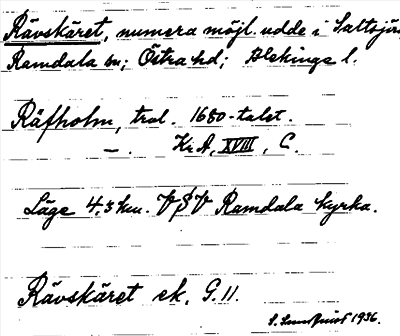 Rävskäret, numera möjl. udde i Saltsjön
Ramdala sn; Östra hd; Blekinge l.
Räfholm, trol. 1680-talet.
– . Kr.A, XVIII, C.
Läge 4,3 km. VSV Ramdala kyrka.
Rävskäret ek. G.11.
1936.